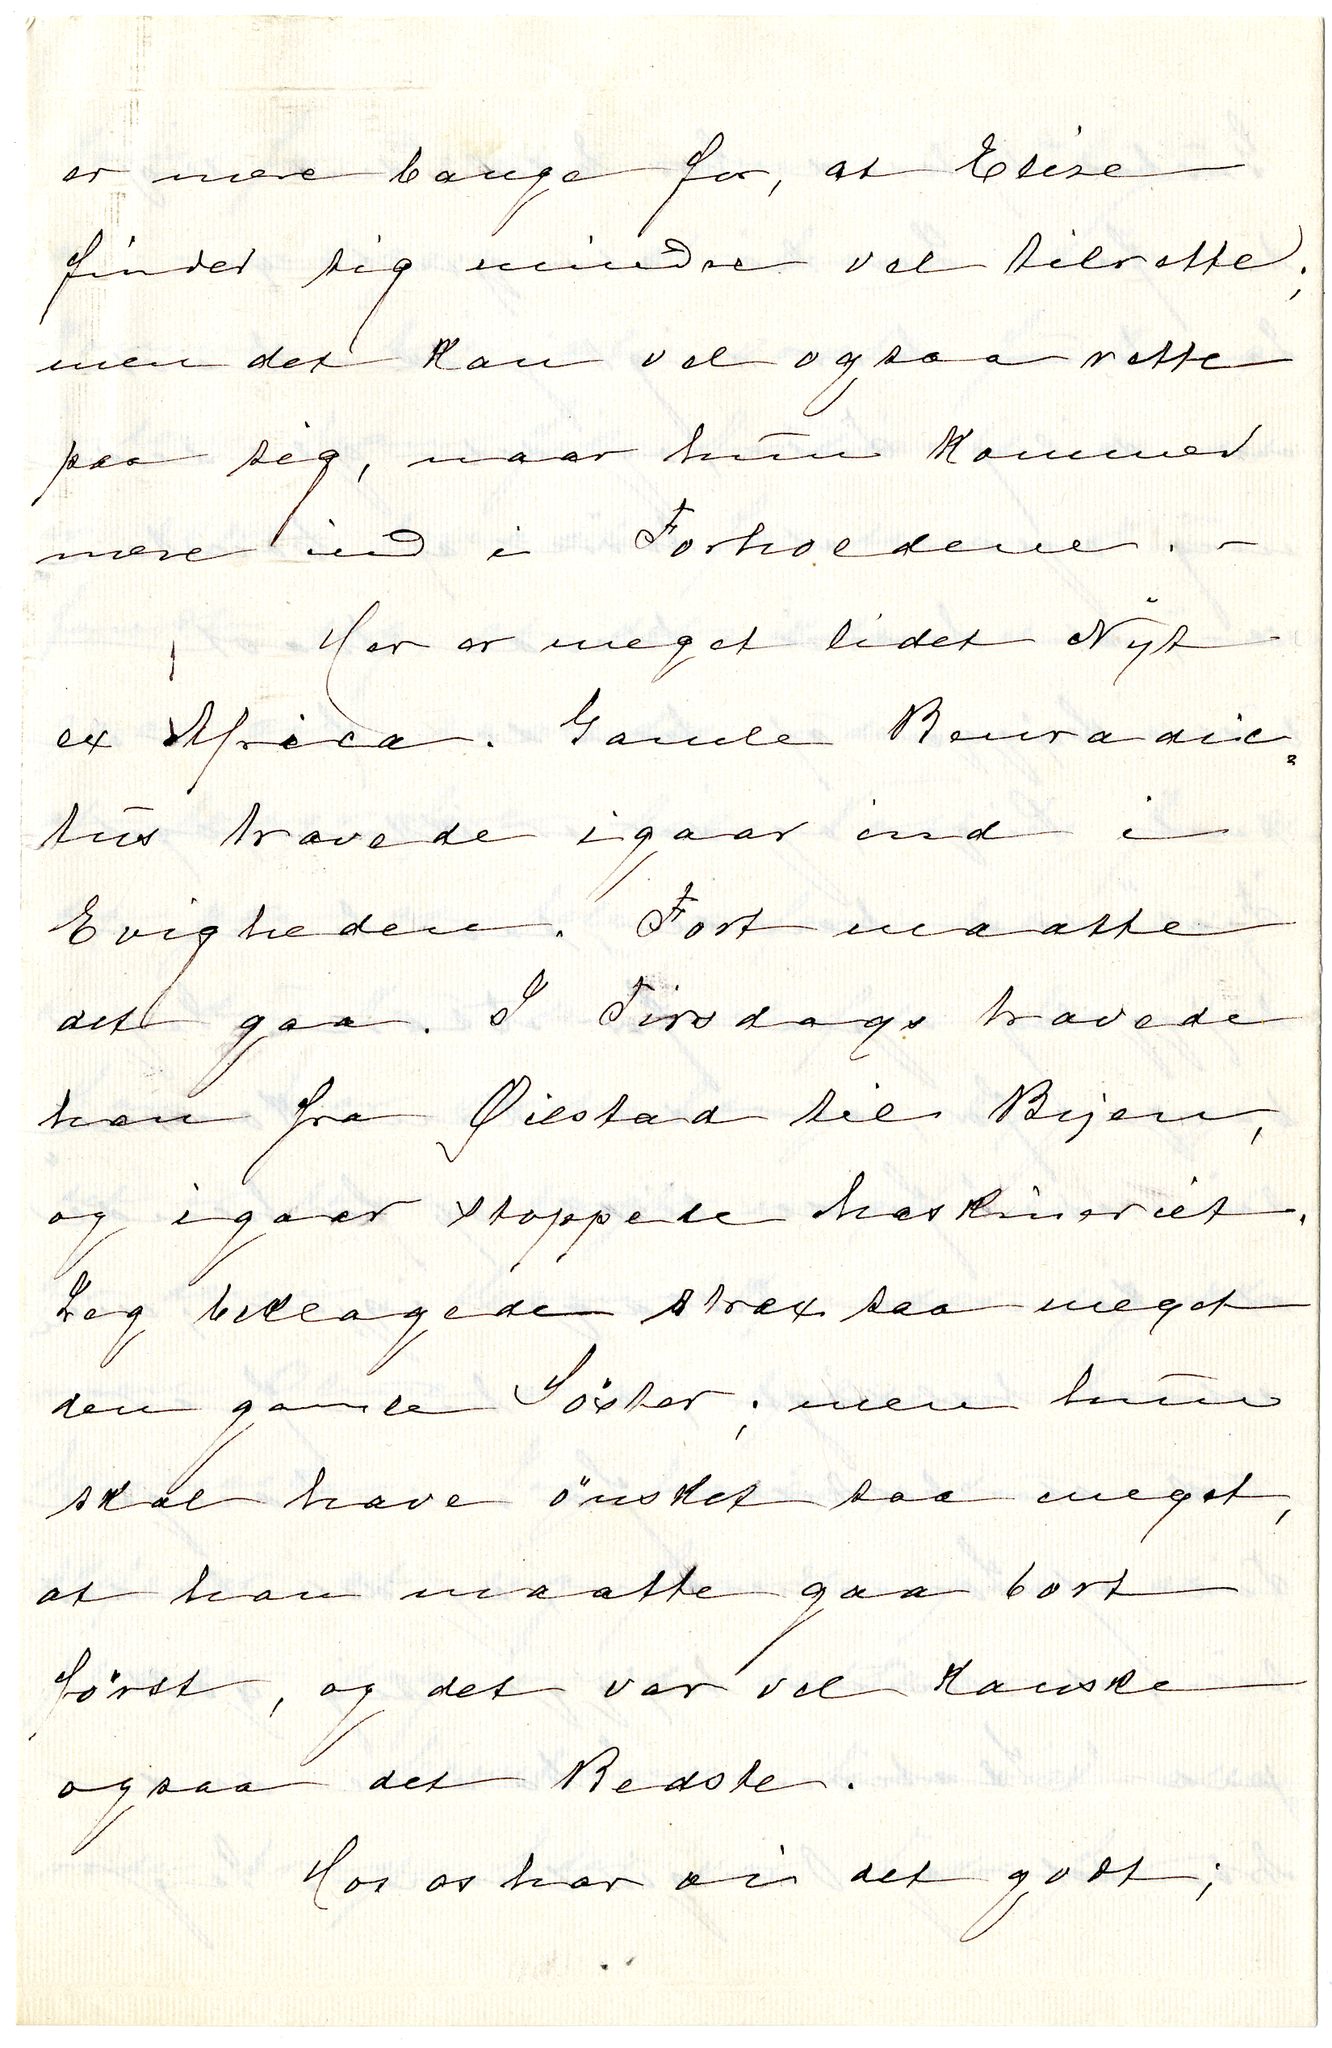 er mere bange for, at Elise
finder sig mindre vel tilrette;
men det kan vel ogsaa rette
paa sig, naar hun kommer
mere ind i Forholdene. –
Her er meget lidet Nyt
ex Africa. Gamle Benradic-
tus travede igaar ind i
Evigheden. Fort maatte
det gaa. I Tirsdags travede
han fra Øiestad til Byen,
og igaar stoppede Maskineriet.
Jeg beklagede strax saa meget
den gamle Söster; men hun
skal have önsket saa meget,
at han maatte gaa bort
först, og det var vel kanske
ogsaa det Bedste.
Hos os har vi det godt;